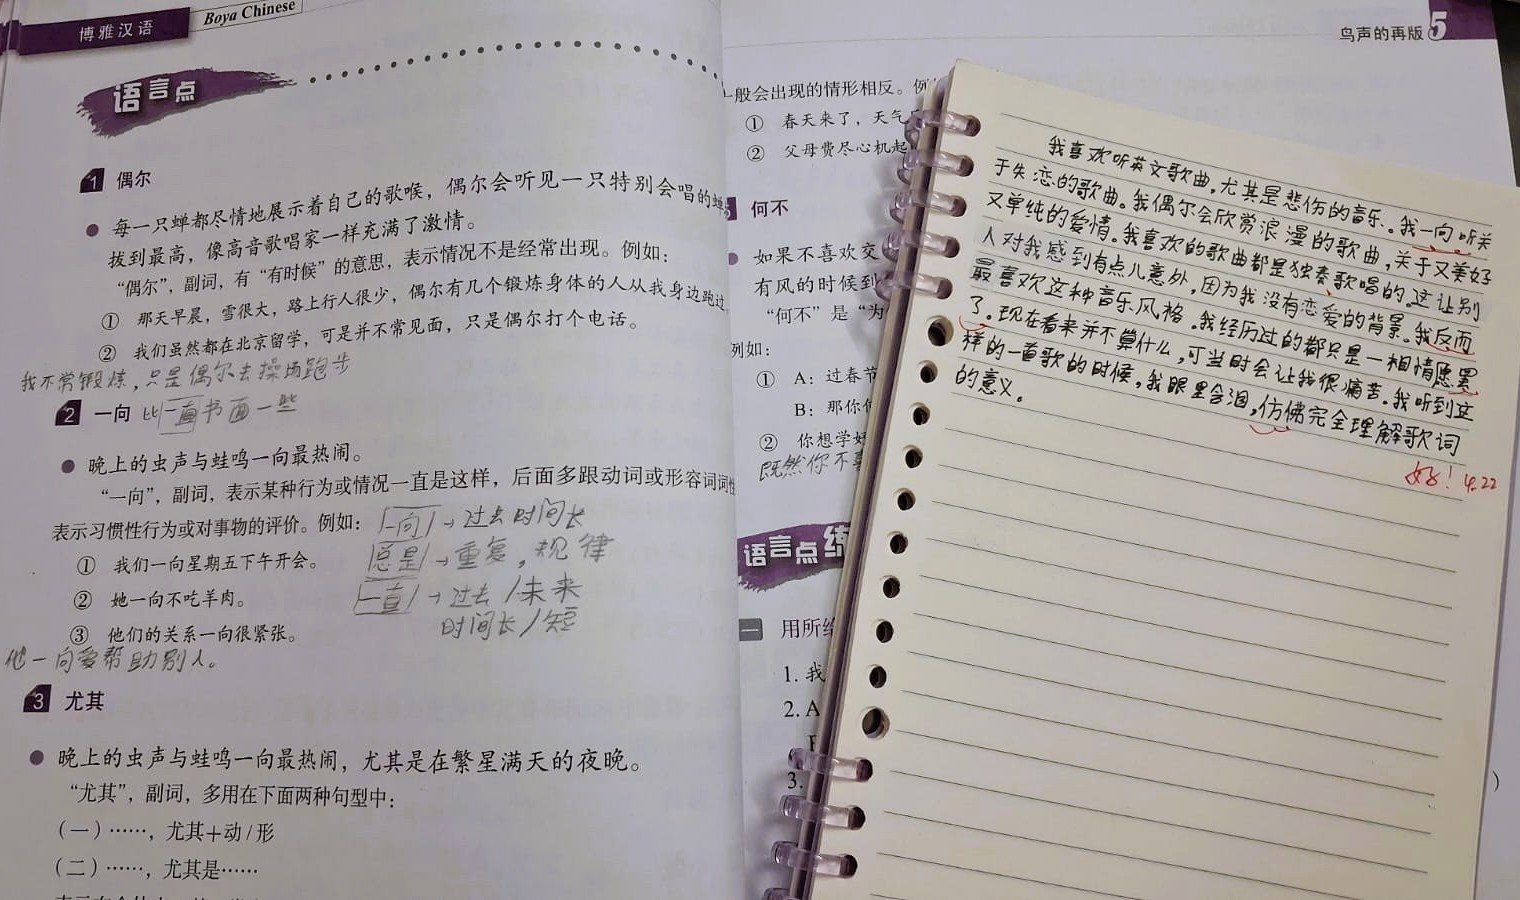 博雅汉语
Boya Chinese
语言点
1 偶尔
● 每一只蝉都尽情地展示着自己的歌喉，偶尔会听见一只特别会唱的蝉
拔到最高，像高音歌唱家一样充满了激情。
“偶尔”，副词，有“有时候”的意思，表示情况不是经常出现。例如：
① 那天早晨，雪很大，路上行人很少，偶尔有几个锻炼身体的人从我身边跑过
② 我们虽然都在北京留学，可是并不常见面，只是偶尔打个电话。
我不常锻炼，只是偶尔去操场跑步
2 一向 比一直书面一些
● 晚上的虫声与蛙鸣一向最热闹。
“一向”，副词，表示某种行为或情况一直是这样，后面多跟动词或形容词词性
表示习惯性行为或对事物的评价。例如：
一向→过去时间长
① 我们一向星期五下午开会。
总是→重复，规律
② 她一向不吃羊肉。
一直→过去/未来
时间长/短
③ 他们的关系一向很紧张。
他一向爱帮助别人。
3 尤其
● 晚上的虫声与蛙鸣一向最热闹，尤其是在繁星满天的夜晚。
“尤其”，副词，多用在下面两种句型中：
（一）……，尤其+动/形
（二）……，尤其是……
鸟声的再版 5
一般会出现的情形相反。例
① 春天来了，天气
② 父母费尽心机起
何不
● 如果不喜欢交
有风的时候到
“何不”是“为
例如：
① A：过春节
B：那你
② 你想学好
既然你不喜
语言点练
一 用所给
1. 我
2. A
3.
我喜欢听英文歌曲，尤其是悲伤的音乐。我一向听关
于失恋的歌曲。我偶尔会欣赏浪漫的歌曲，关于又美好
又单纯的爱情。我喜欢的歌曲都是独奏歌唱的。这让别
人对我感到有点儿意外，因为我没有恋爱的背景。我反而
最喜欢这种音乐风格。我经历过的都只是一相情愿罢
了。现在看来并不算什么，可当时会让我很痛苦。我听到这
样的一首歌的时候，我眼里含泪，仿佛完全理解歌词
的意义。
好！4.22